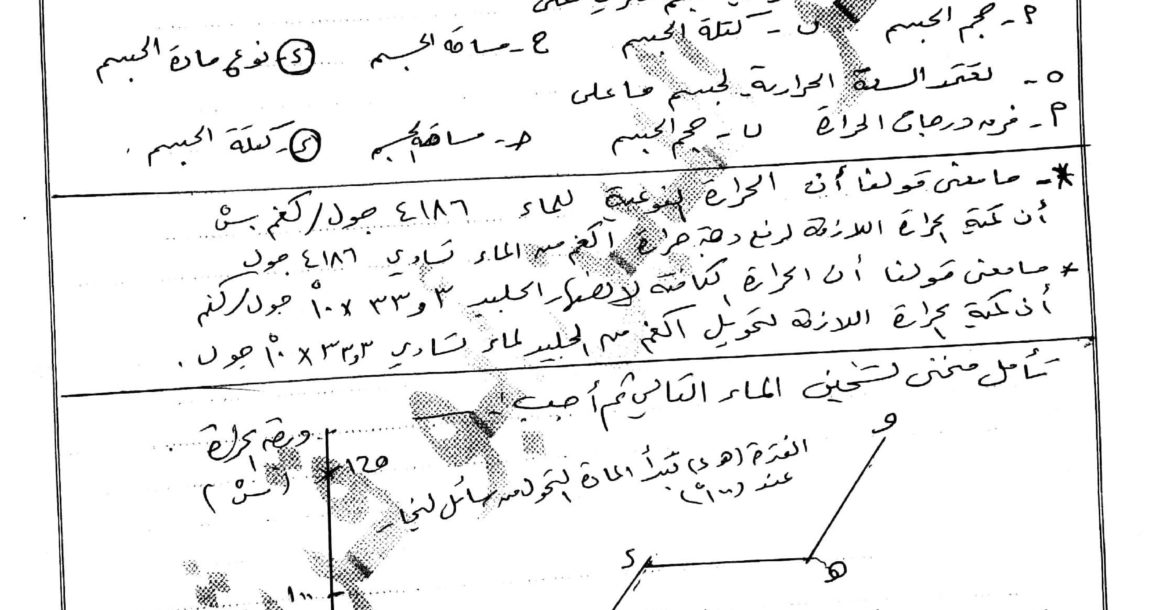 على
أ - حجم الجسم ب - كتلة الجسم ج - مساحة الجسم د - نوع مادة الجسم
٥ - تعتمد السعة الحرارية لجسم ما على
أ - فرق درجات الحرارة ب - حجم الجسم ج - مساحة الجسم د - كتلة الجسم .
* - ما معنى قولنا أن الحرارة النوعية للماء ٤١٨٦ جول/كغم.س°
أن كمية الحرارة اللازمة لرفع درجة حرارة ١كغم من الماء تساوي ٤١٨٦ جول
* ما معنى قولنا أن الحرارة الكامنة لانصهار الجليد ٣و٣٣ × ١٠° جول/كغم
أن كمية الحرارة اللازمة لتحويل ١كغم من الجليد لماء تساوي ٣و٣٣ × ١٠° جول .
تأمل منحنى تسخين الماء التالي ثم أجب :-
درجة الحرارة
(س°)
١٢٥
الفترة (د هـ) تبدأ المادة التحول من سائل لبخار
عند (١٠٠°)
و
د
هـ
١٠٠